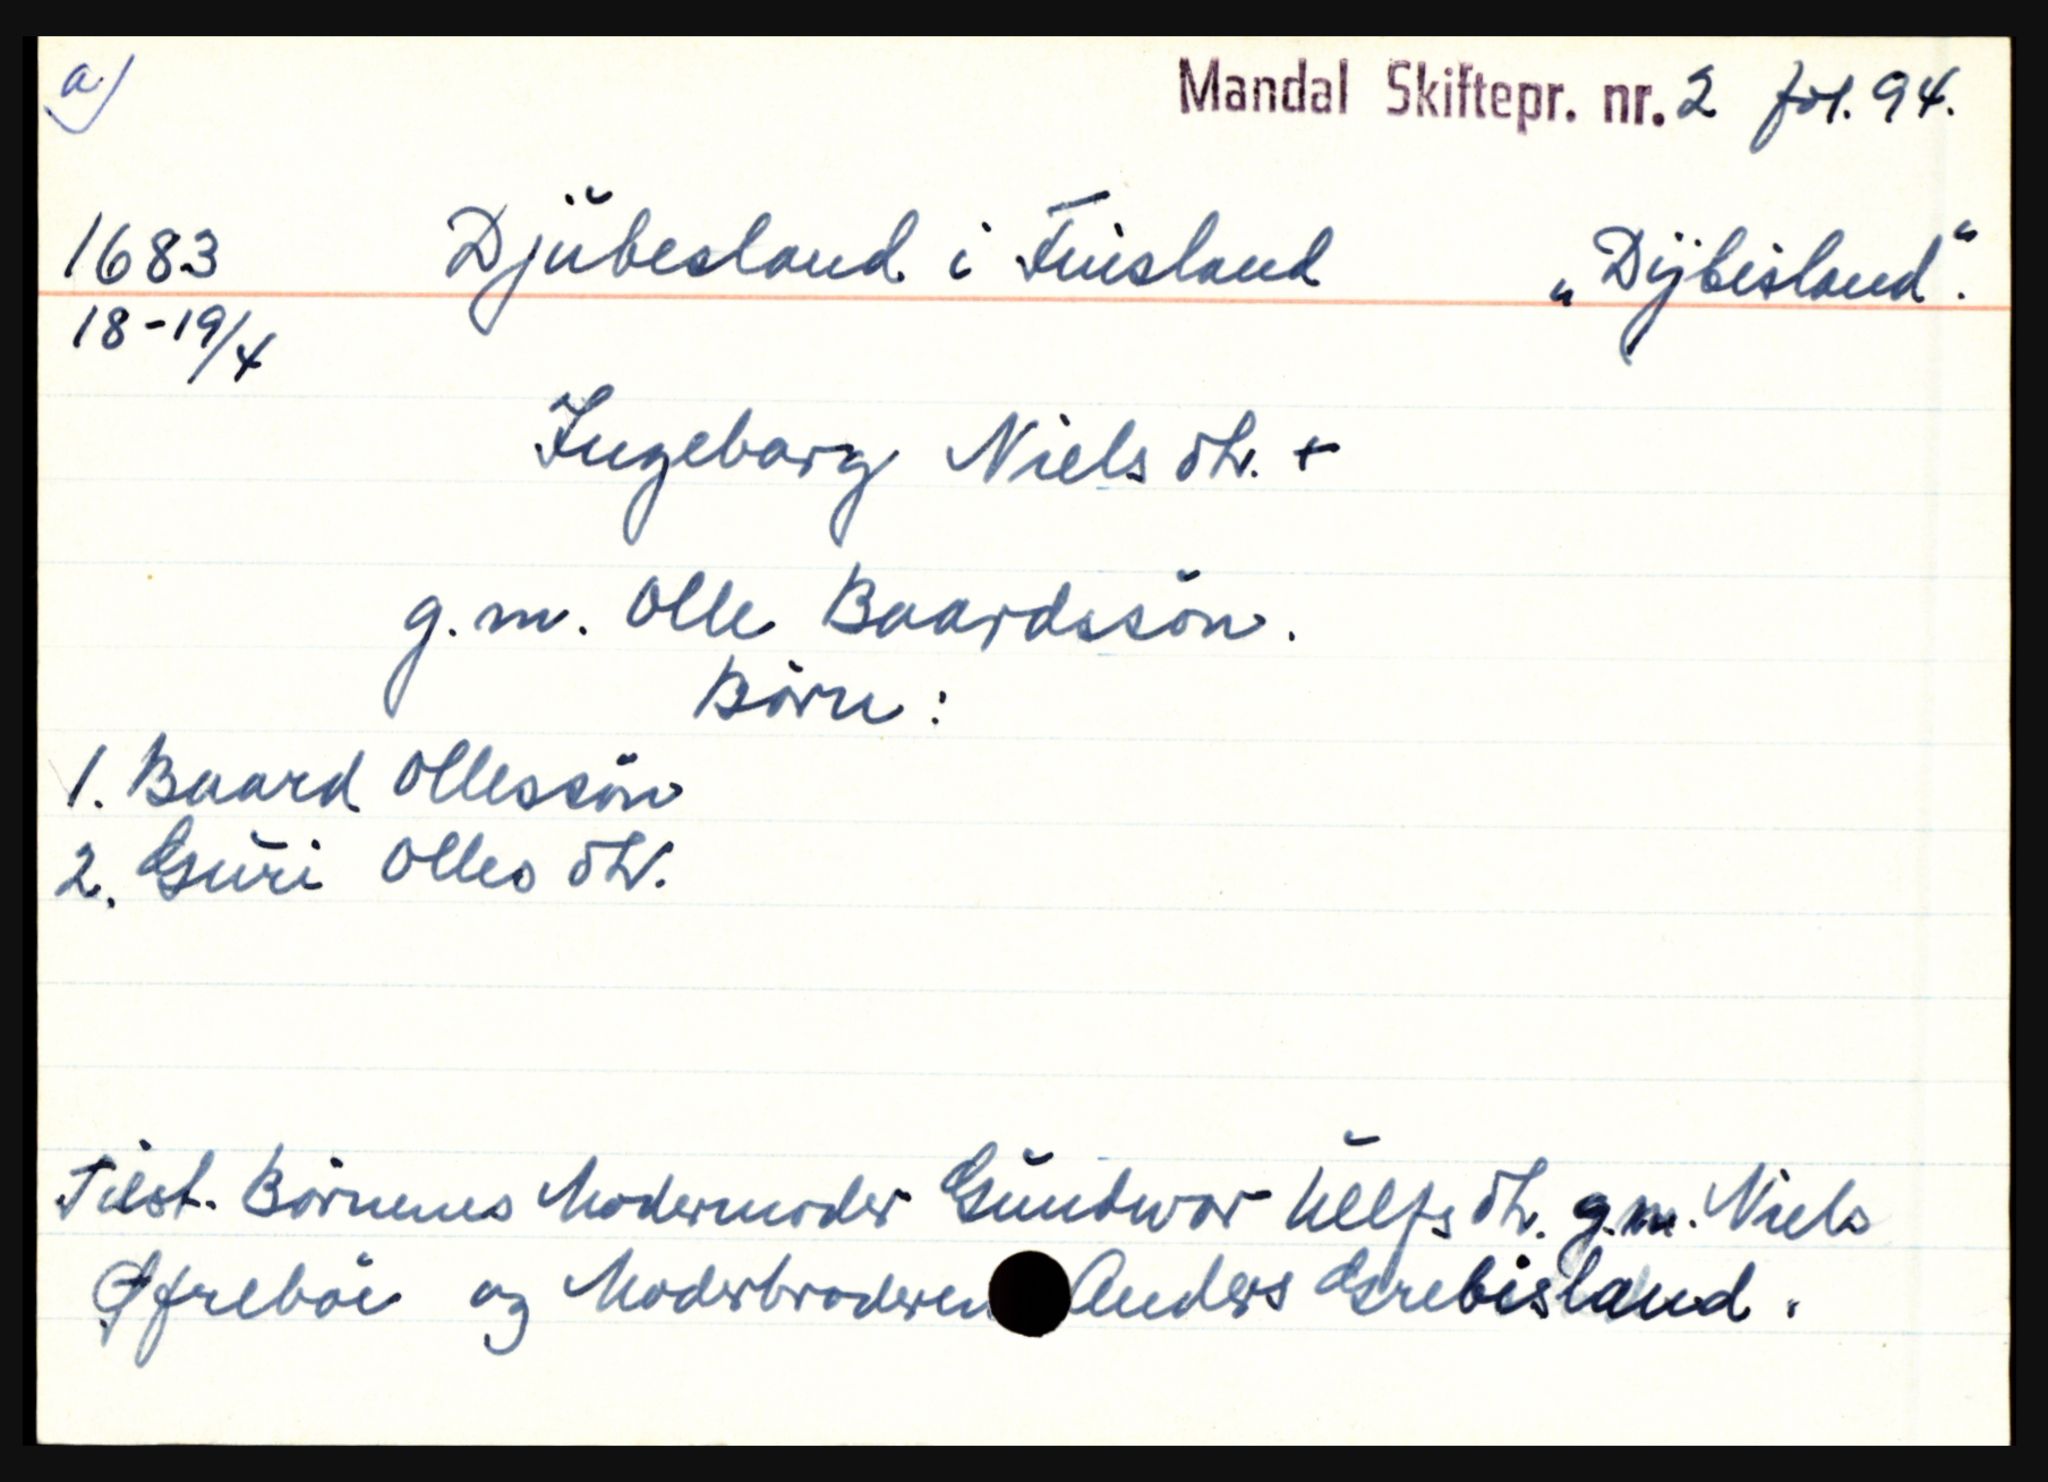 a)
Mandal Skiftepr. nr. 2 fol. 94.
1683 Djŭbesland i Finisland „Dÿbisland“.
18-19/4
Ingeborg Niels dtr. +
g.m. Olle Baardssön.
Börn:
1. Baard Ollessön
2. Gŭri Olles dtr.
Tilst. Börnenes Modermoder Gŭndwor Ŭllfs dtr. g.m. Niels
Øfreböe og Moderbroderen Anders Grebisland.